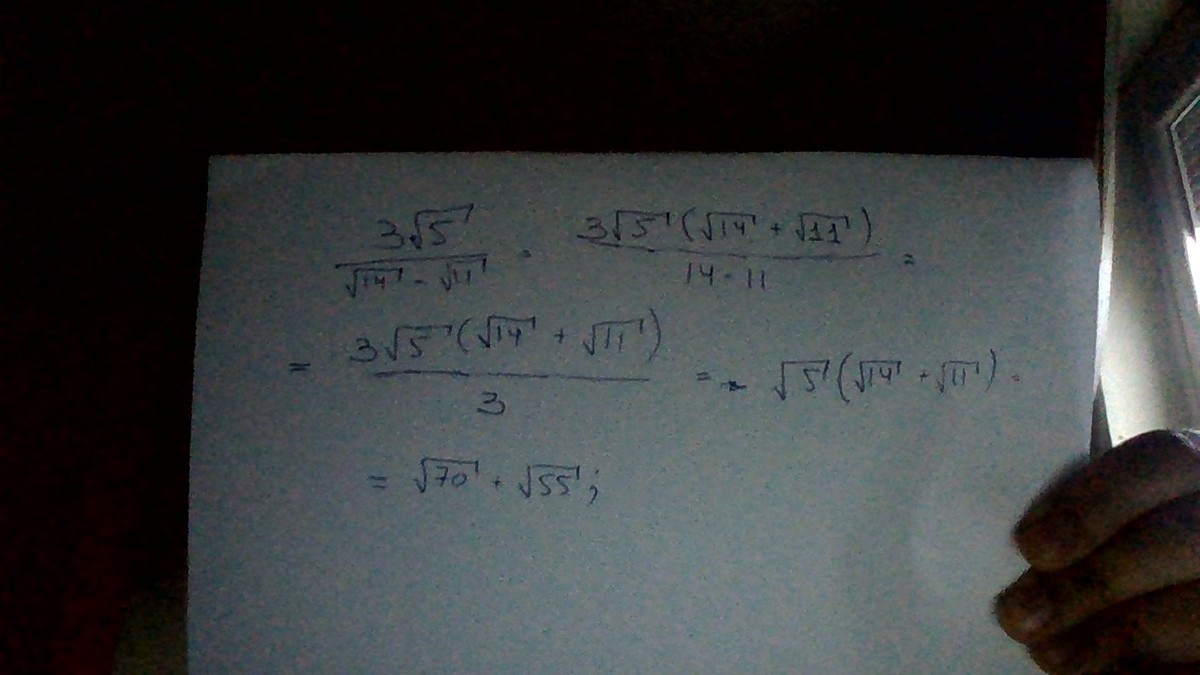 3√5 / (√14 - √11) = 3√5 (√14 + √11) / (14 - 11) =
= 3√5 (√14 + √11) / 3 = √5 (√14 + √11) =
= √70 + √55;